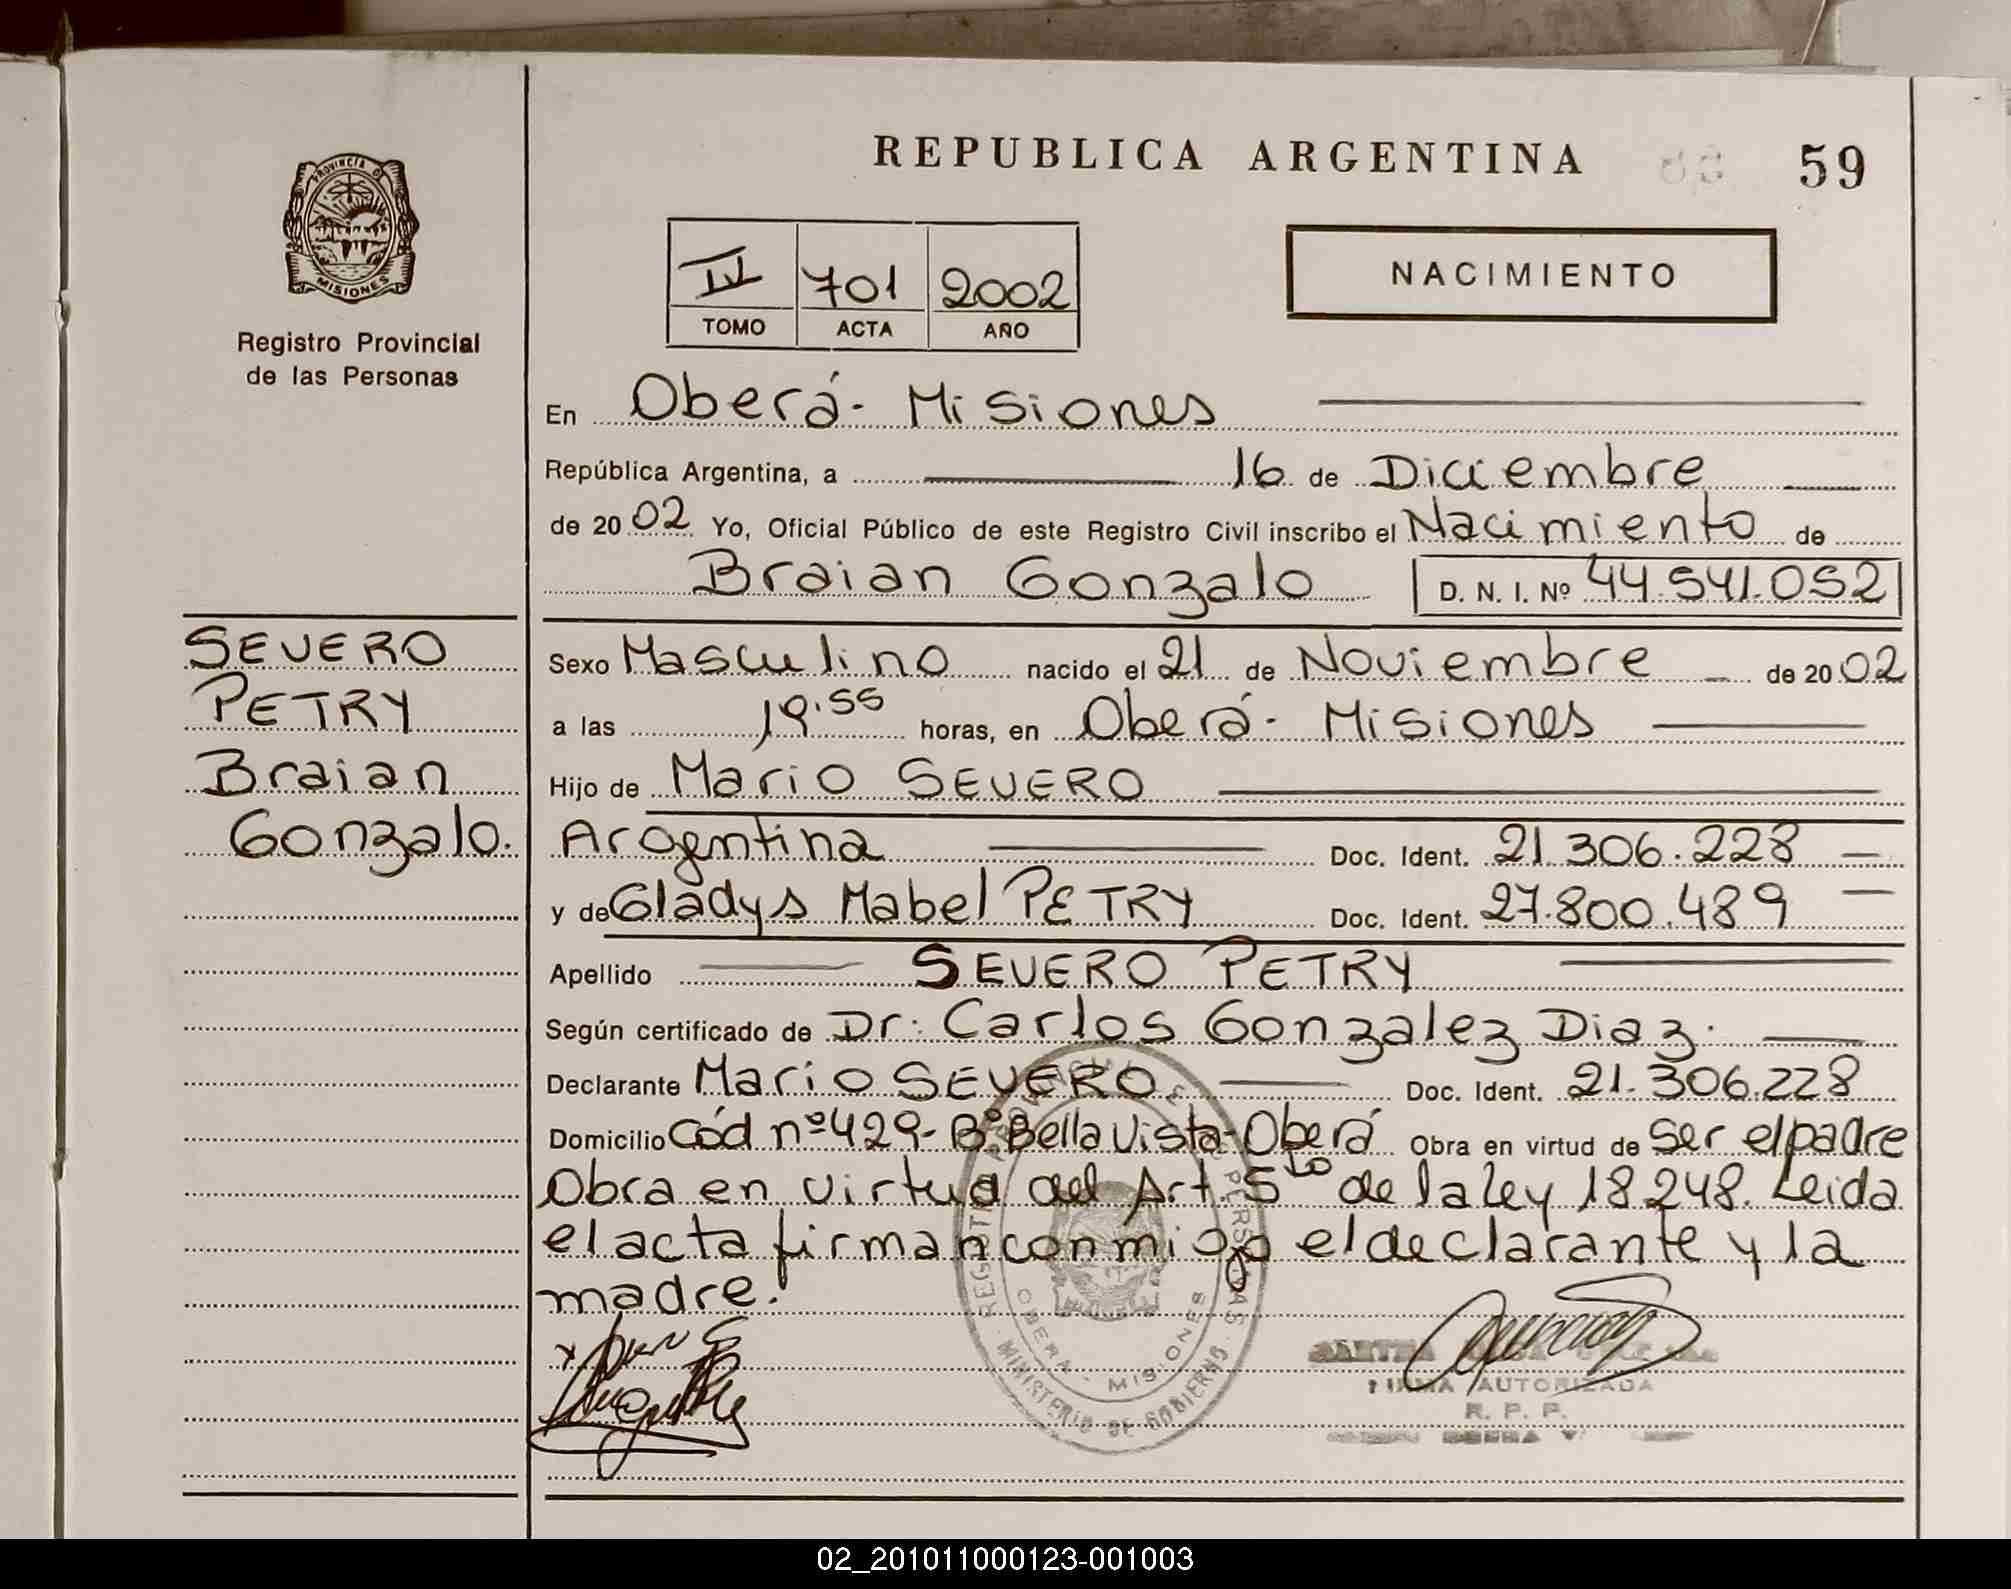 REPUBLICA ARGENTINA 59
PROVINCIA DE
MISIONES
Registro Provincial
de las Personas
IV 701 2002
TOMO ACTA AÑO
NACIMIENTO
En Oberá - Misiones
República Argentina, a 16 de Diciembre
de 20 02 Yo, Oficial Público de este Registro Civil inscribo el Nacimiento de
Braian Gonzalo D. N. I. Nº 44.541.052
SEVERO
PETRY
Braian
Gonzalo.
Sexo Masculino nacido el 21 de Noviembre de 20 02
a las 19.55 horas, en Oberá - Misiones
Hijo de Mario SEVERO
Argentina Doc. Ident. 21.306.228
y de Gladys Mabel PETRY Doc. Ident. 27.800.489
Apellido SEVERO PETRY
Según certificado de Dr. Carlos Gonzalez Diaz.
Declarante Mario SEVERO Doc. Ident. 21.306.228
Domicilio Cód nº 429 - Bº Bella Vista - Oberá Obra en virtud de ser el padre
Obra en virtud del Art. 5to de la ley 18.248. Leida
el acta firman conmigo el declarante y la
madre.
REGISTRO PROVINCIAL DE LAS PERSONAS
OBERA - MISIONES
MINISTERIO DE GOBIERNO
FIRMA AUTORIZADA
R. P. P.
OBERA
02_201011000123-001003